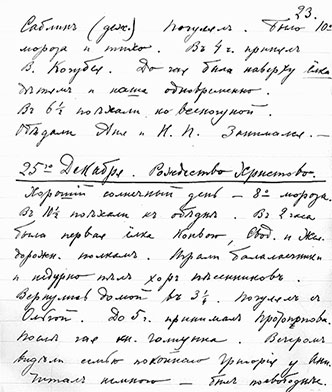 23.
Саблинъ (деж.) Погулялъ. Было 10°
мороза и тихо. Въ 4 ч. принялъ
В. Кочубея. До чая была наверху ёлка
дѣтямъ и наша одновременно.
Въ 6½ поѣхали ко всенощной.
Обѣдали Аня и Н. П. Занимался. —
25го Декабря. Рождество Христово.
Хорошій солнечный день — 8° мороза.
Въ 10½ поѣхали къ обѣднѣ. Въ 2 часа
была первая ёлка Конвою, Свод. и Жел.
дорожн. полкамъ. Играли балалаечники
и недурно пѣлъ хоръ пѣсенниковъ.
Вернулись домой въ 3¼. Погулялъ съ
Ольгой. До 5 ч. принималъ Протопопова.
Послѣ чая кн. Голицына. Вечеромъ
видѣли семью покойнаго Григорія у Ани.
Читалъ немного — былъ свободенъ